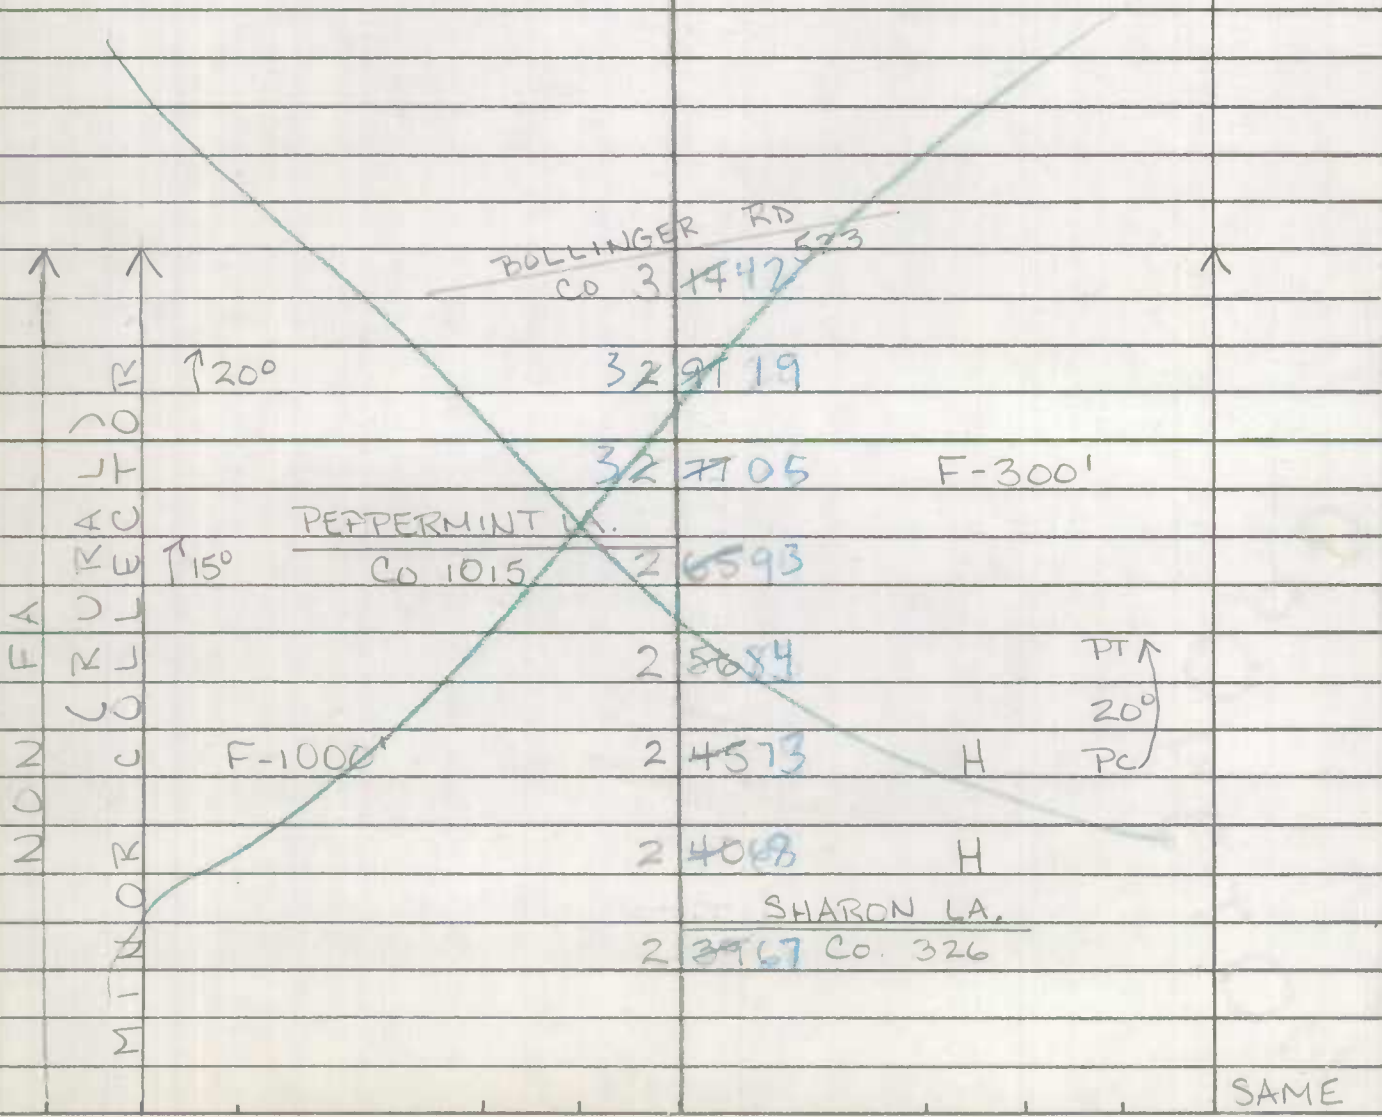 BOLLINGER RD
523
CO 3 17 42
↑20° 32 91 19
32 77 05 F-300'
PEPPERMINT LA.
↑15° CO 1015 2 65 93
2 56 84 PT
20°
F-1000' 2 45 73 H PC
2 40 68 H
SHARON LA.
2 39 67 CO. 326
NON FA
MINOR COLLECTOR
(RURAL)
SAME